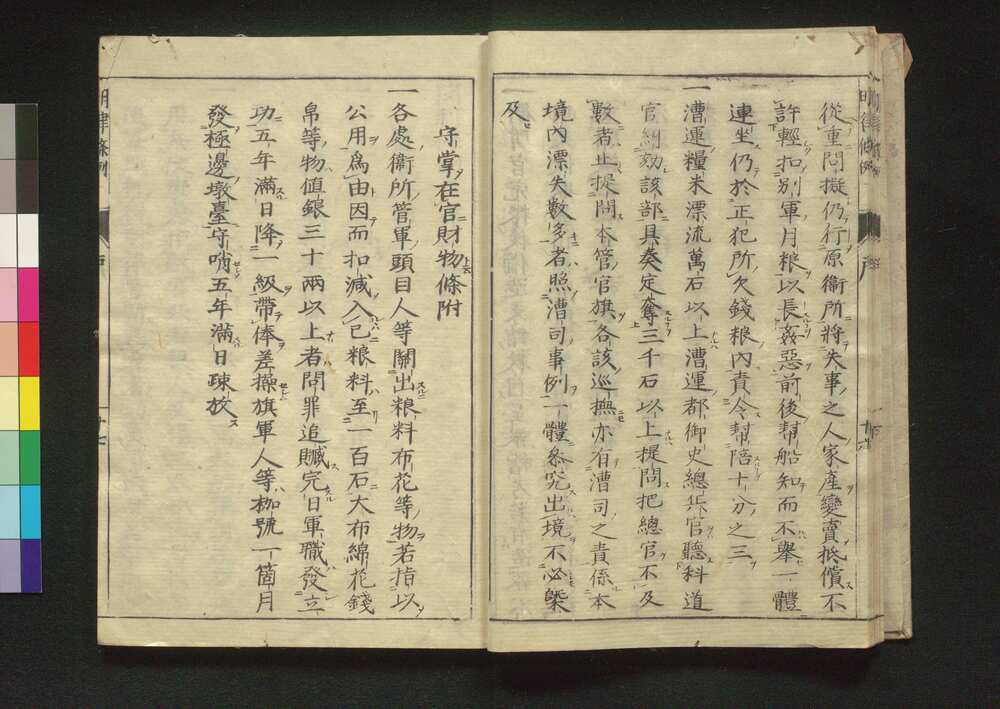 從重問擬仍行原衞所將失事之人家產變賣抵償不
許輕扣別軍月粮以長姦惡前後幇船知而不舉一體
連坐仍於正犯所欠錢粮內責令幇陪十分之三
一漕運糧米漂流萬石以上漕運都御史總兵官聽科道
官糾劾該部具奏定奪三千石以上提問把總官不及
數者止提問本管官旗各該巡撫亦有漕司之責係本
境內漂失數多者照漕司事例一體叅究出境不必槩
及
守掌在官財物條附
一各處衞所管軍頭目人等關出粮料布花等物若指以
公用爲由因而扣減入己粮料至一百石大布綿花錢
帛等物值銀三十兩以上者問罪追贓完日軍職發立
功五年滿日降一級帶俸差操旗軍人等枷號一箇月
發極邊墩臺守哨五年滿日疎放
明律條例
戶
十七